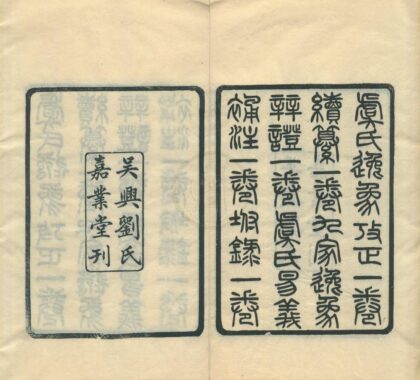 虞氏逸象攷正一卷
續纂一卷九家逸象
辨證一卷虞氏易義
補注一卷坿錄一卷
吳興劉氏
嘉業堂刊